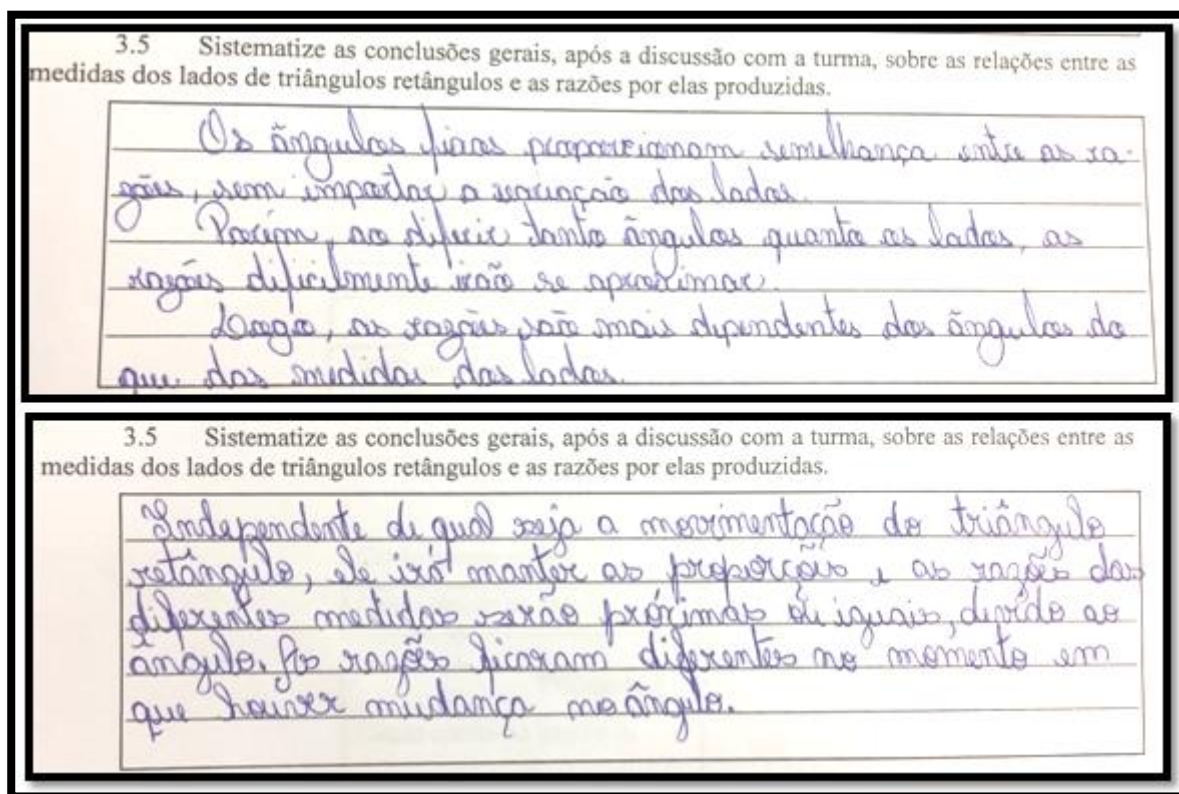 3.5 Sistematize as conclusões gerais, após a discussão com a turma, sobre as relações entre as
medidas dos lados de triângulos retângulos e as razões por elas produzidas.
Os ângulos fixos proporcionam semelhança entre as ra-
zões, sem importar a variação dos lados.
Porém, ao diferir tanto ângulos quanto os lados, as
razões dificilmente irão se aproximar.
Logo, as razões são mais dependentes dos ângulos do
que das medidas dos lados.
3.5 Sistematize as conclusões gerais, após a discussão com a turma, sobre as relações entre as
medidas dos lados de triângulos retângulos e as razões por elas produzidas.
Independente de qual seja a movimentação do triângulo
retângulo, ele irá manter as proporções e as razões das
diferentes medidas serão próximas ou iguais, devido ao
ângulo. As razões ficaram diferentes no momento em
que houver mudança no ângulo.